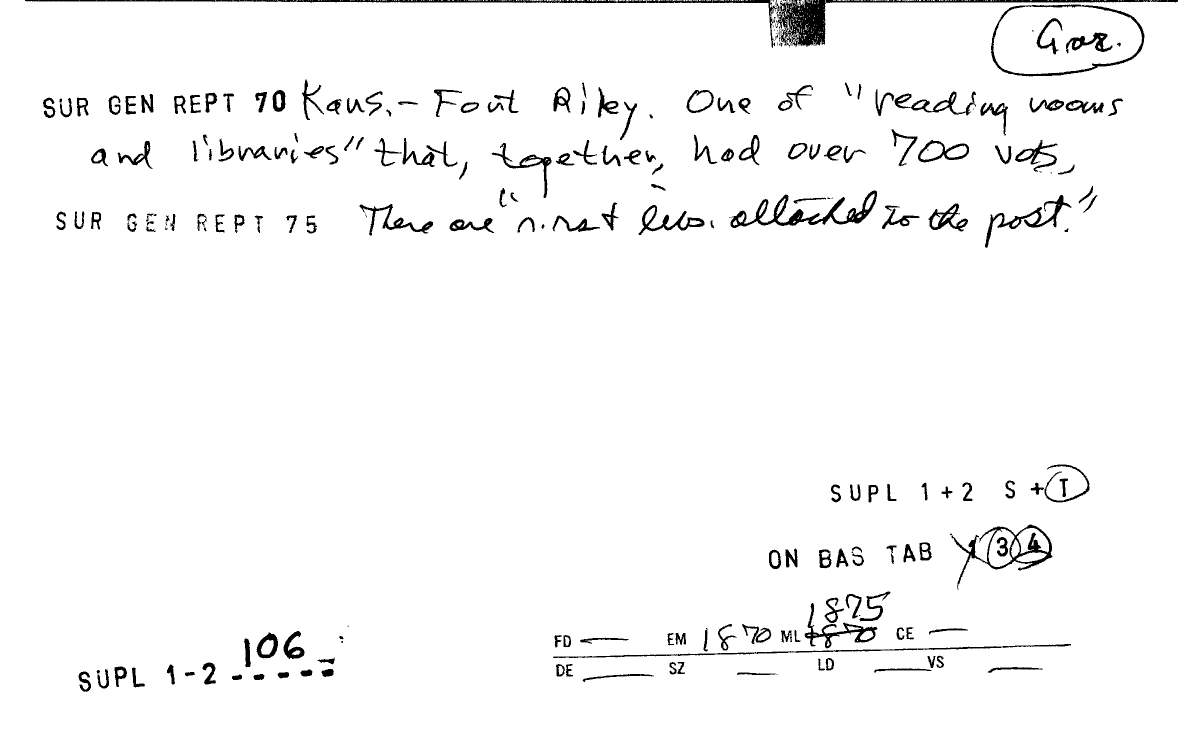 Gar.
SUR GEN REPT 70 Kans. - Fort Riley. One of "reading rooms
and libraries" that, together, had over 700 vols,
SUR GEN REPT 75 There are "n. nst libs. attached to the post."
SUPL 1+2 S + T
ON BAS TAB 1 3 4
1875
FD — EM 1870 ML 1870 CE —
SUPL 1-2 106
DE SZ LD VS